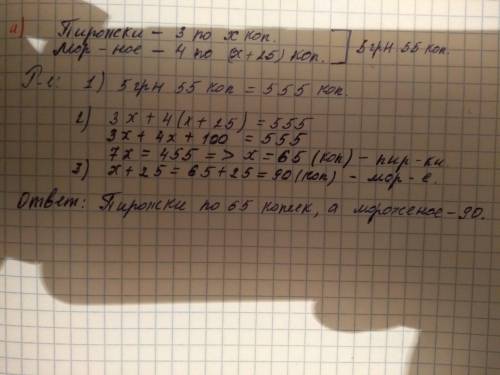 а) Пирожки – 3 по х коп.
Мор-ное – 4 по (х + 25) коп. ] 5 грн 55 коп.
Р-е: 1) 5 грн 55 коп = 555 коп.
2) 3х + 4(х + 25) = 555
3х + 4х + 100 = 555
7х = 455 => х = 65 (коп) – пир-ки.
3) х + 25 = 65 + 25 = 90 (коп) – мор-е.
Ответ: Пирожки по 65 копеек, а мороженое – 90.